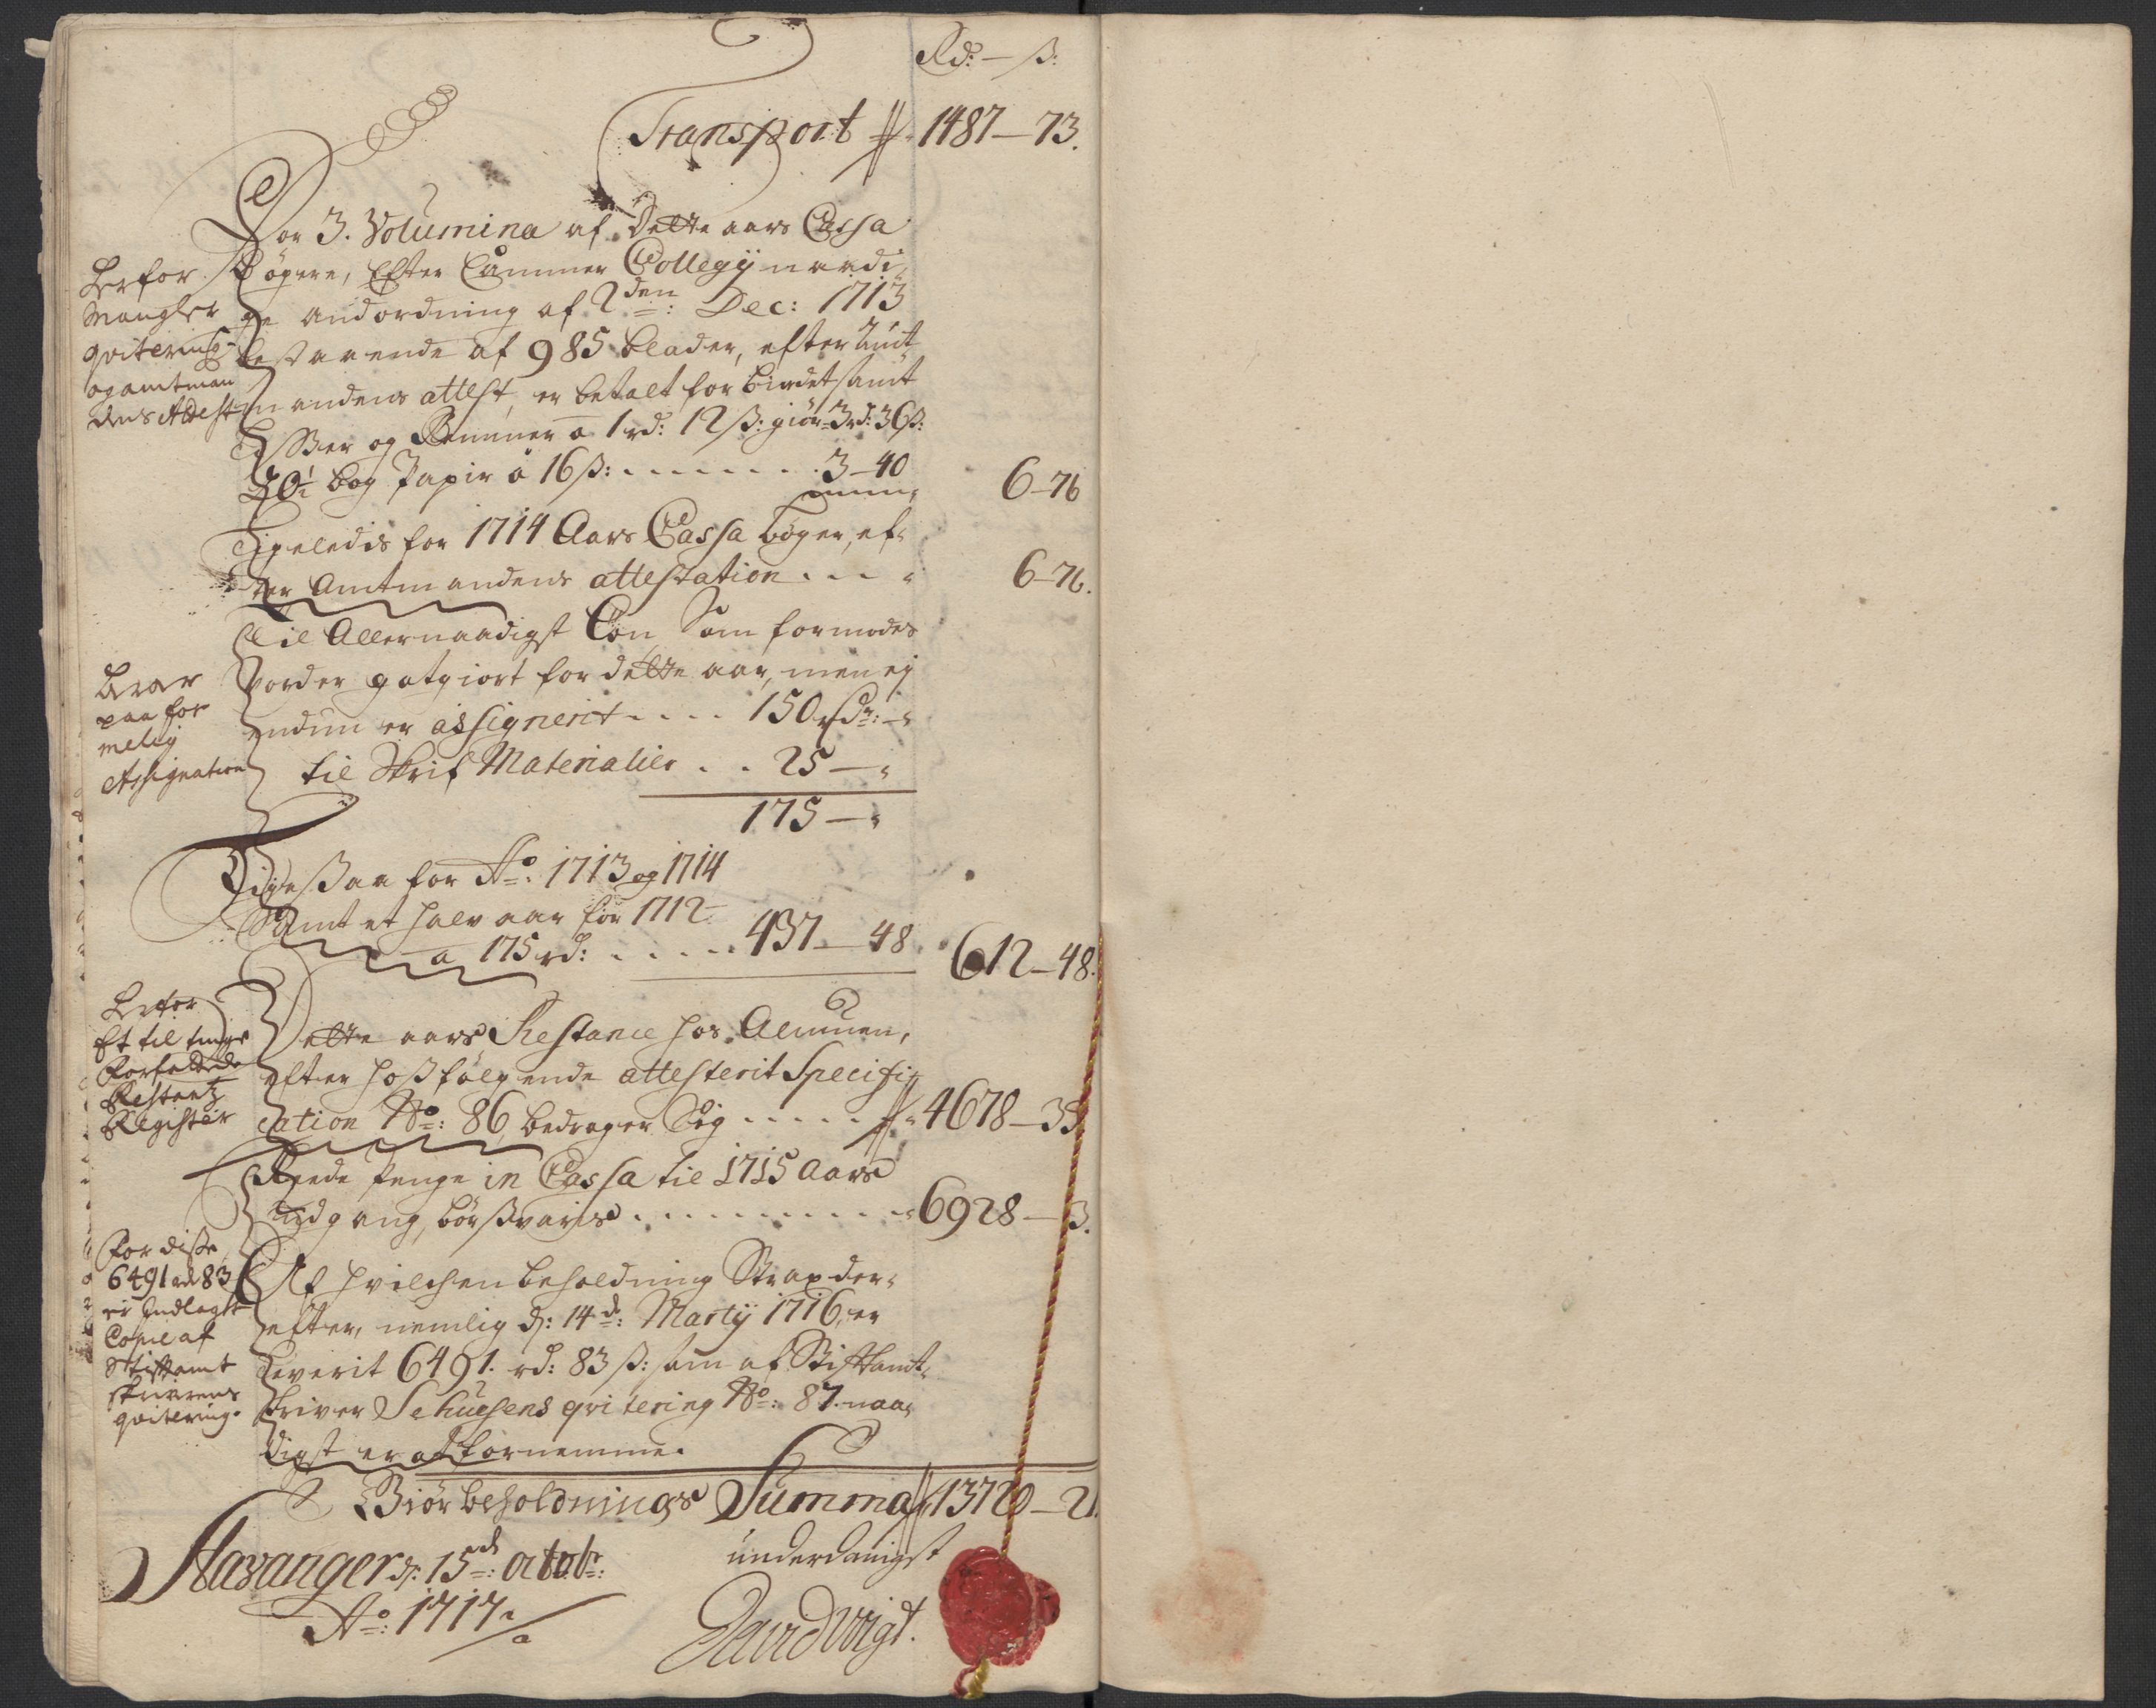 Rd: – ß:
Transport 1487–73.
For 3. Volumina af Dette aars Cassa
Bøger, Efter Cammer Collegij naadi-
ge anordning af 2den: Dec: 1713
bestaaende af 985 blader, efter amt
mandens attest, er betalt for bindet samt
og Remmer a 1 rd: 12 ß: giör 3rd: 36ß:
20½ bog Papir a 16 ß: . . . . . . . 3–40 6–76
Ligeledis for 1714 Aars Cassa bøger, ef-
ter Amtmandens attestation . . . 6–76.
Til Allernaadigst Løn Som formodes
vorder gotgiort for dette aar, men ej
endnu er assignerit . . . . 150 rdr: –
til Skrif Materialier . . 25 –
175 –
Ligesaa for Ao: 1713 og 1714
Samt et halv aar for 1712
a 175 rd: . . . . . 437–48 612–48.
Dette aars Restance hos Almuen,
efter hoßfølgende attesterit Specifi-
cation No: 86, bedrager Sig . . . . . 4678–35
Reede Penge in Cassa til 1715 Aars
udgang, . . . . . . . . . . 6928–3.
Af hvilchen beholdning Strax der-
efter, nemlig d: 14de: Martij 1716, er
leverit 6491. rd: 83 ß: som af Stiftamt-
skriver qvitering No: 87. naa-
digst er at fornemme.
Giør beholdnings Summa 13720–21.
Stavanger d: 15de: octobr:
Ao: 1717
underdanigst
David Voigt.
Herfor
Mangler
qvitering
og amtman
dens Attest
paa for
melig
Assignation
Herfor
Et til tinge
Forfattede
Restantz
Register
For diße
6491 rd 83
er Indlagt
Copie af
Stiftamt
skrivrens
qvitering.